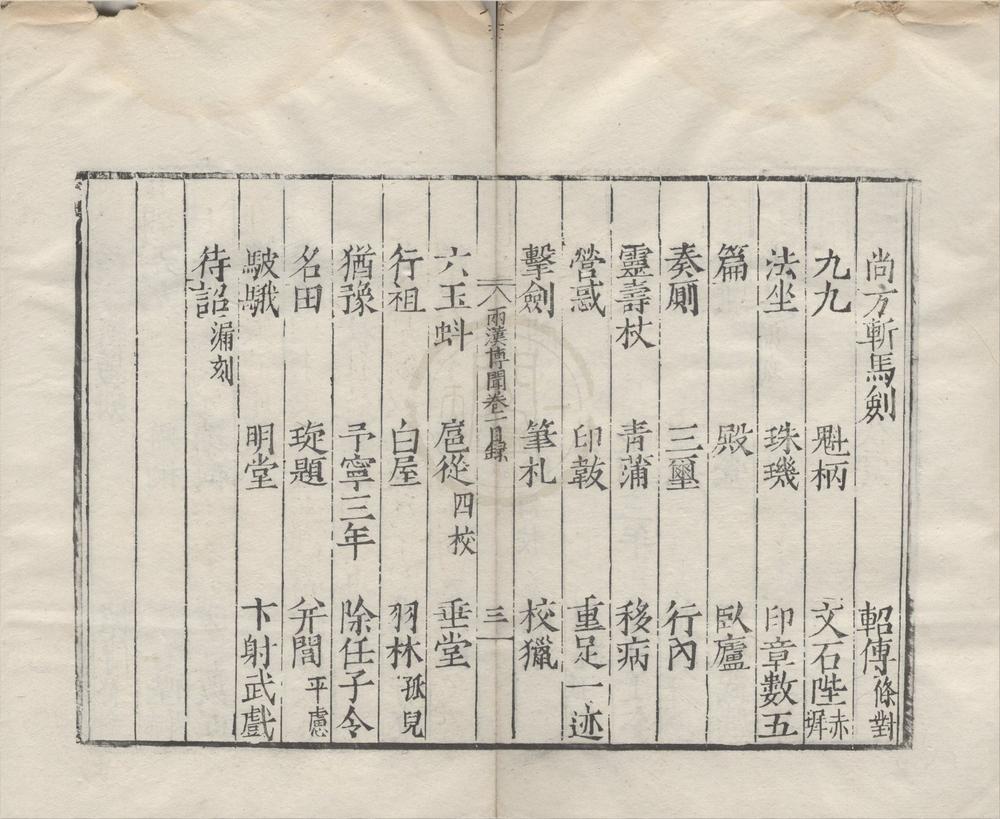 尚方斬馬劍　軺傳條對
九九　魁柄　文石陛赤墀
法坐　珠璣　印章數五
篇　殿　臥廬
奏厠　三璽　行內
靈壽杖　青蒲　移病
營惑　印韍　重足一迹
擊劍　筆札　校獵
兩漢博聞卷一目錄　三
六玉蚪　扈從四校　垂堂
行祖　白屋　羽林孤兒
猶豫　予寧三年　除任子令
名田　琁題　并閭平慮
駊騀　明堂　卞射武戲
待詔漏刻